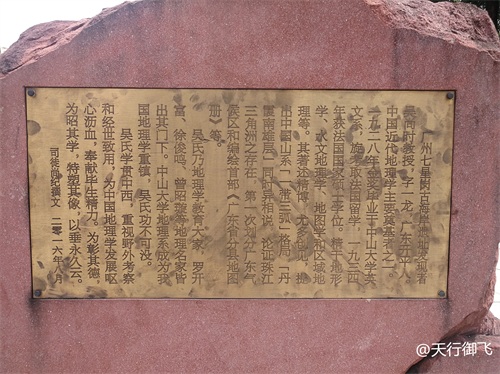 广州七星岗古海岸遗址发现者
吴尚时教授，字一龙，广东开平人，
中国近代地理学主要奠基者之一。
一九二八年金奖毕业于中山大学英
文系，旋考取法国留学，一九三四
年获法国国家硕士学位。精于地形
学、水文地理学、地图学和区域地
理等。其著述精博，尤多创见，提
出中国山系“一带三弧”格局、“丹
霞南雄层”同时异相说，论证珠江
三角洲之存在，第一次划分广东气
候区和编绘首部《广东省分县地图
册》等。
吴氏乃地理学教育大家，罗开
富、徐俊鸣、曾昭璇等地理名家皆
出其门下。中山大学地理系成为我
国地理学重镇，吴氏功不可没。
吴氏学贯中西，重视野外考察
和经世致用，为中国地理学发展呕
心沥血，奉献毕生精力。为彰其德，
为昭其学，特塑其像，以垂永久云。
司徒尚纪撰文 二零一六年八月
@天行御飞